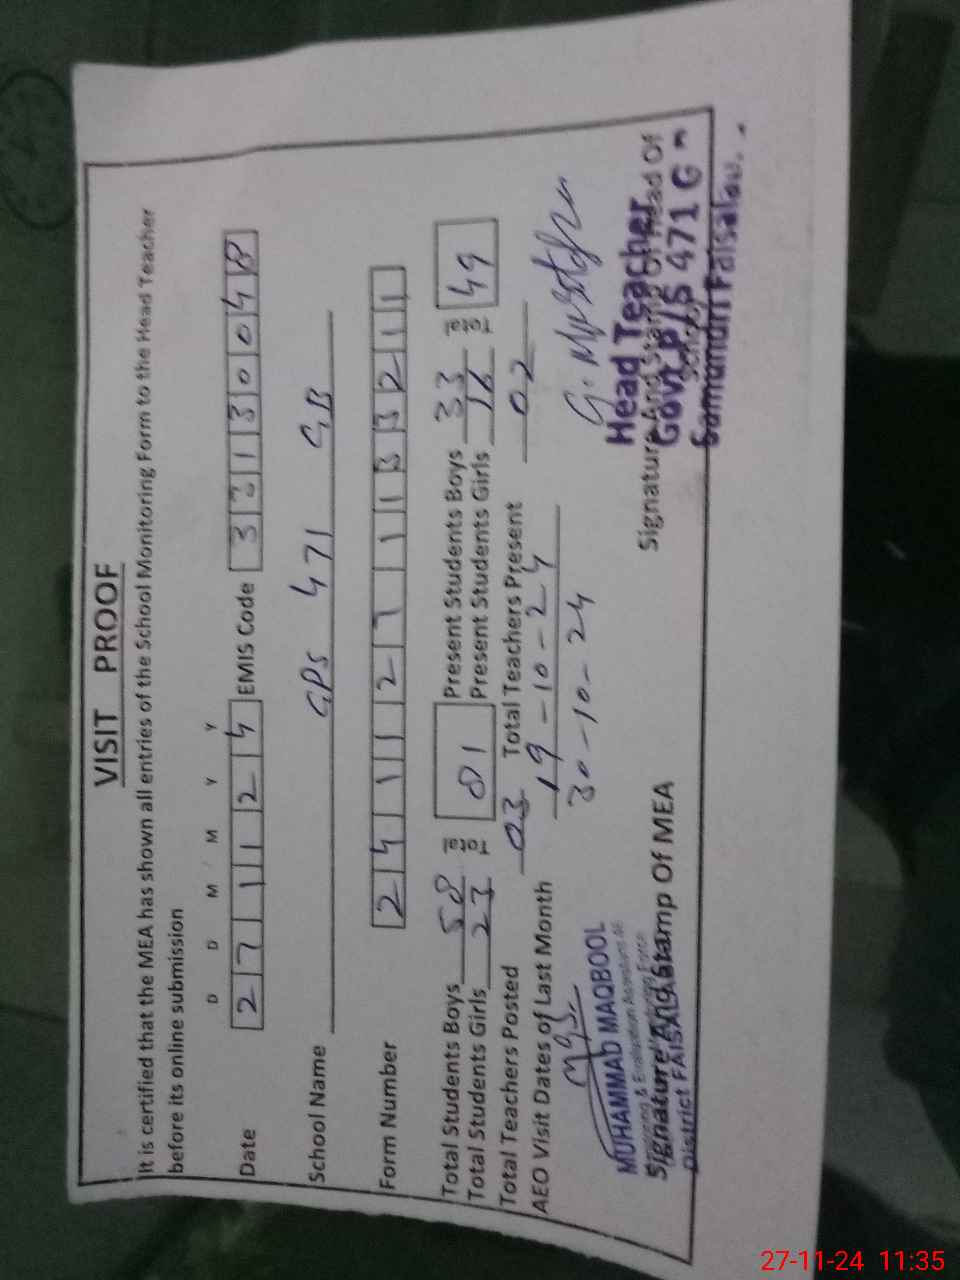 VISIT PROOF
It is certified that the MEA has shown all entries of the School Monitoring Form to the Head Teacher
before its online submission
D D M M Y Y
Date 271124 EMIS Code 33130048
School Name GPS 471 GB
Form Number 241127113321
Total Students Boys 58 Total 81 Present Students Boys 33 Total 49
Total Students Girls 23 Present Students Girls 16
Total Teachers Posted 03 Total Teachers Present 02
AEO Visit Dates of Last Month 19-10-24
30-10-24
G. Mustafa
MUHAMMAD MAQBOOL
Monitoring & Evaluation Assistant
District FAISALABAD
Signature And Stamp Of MEA
Head Teacher
Govt. P/S 471 G
Samundri Faisalabad
Signature And Stamp Of Head Of
School
27-11-24 11:35